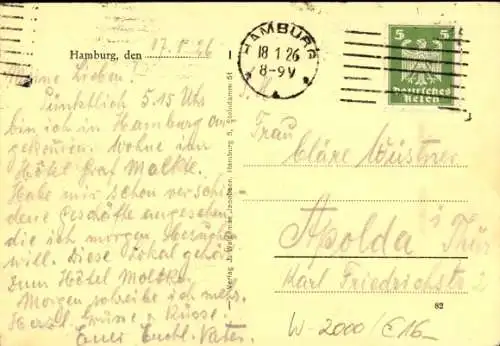 Hamburg, den 17.1.26
Meine Lieben!
Pünktlich 5.15 Uhr
bin ich in Hamburg an-
gekommen. Wohne im
Hôtel Graf Moltke.
Habe mir schon verschie
dene Geschäfte angesehen
die ich morgen besuchen
will. Diese Lokal gehört
zum Hôtel Moltke.
Morgen schreibe ich mehr.
Herzl. Grüsse u Küsse.
Euer Vater.
Verlag J. Jacobsen, Hamburg 5, Steindamm 51
HAMBURG
18 1 26
8-9V
5 5
Deutsches
Reich
Frau
Cläre Wüstner
Apolda i Thür
Karl Friedrichstr 2
82
W-2000/€16-